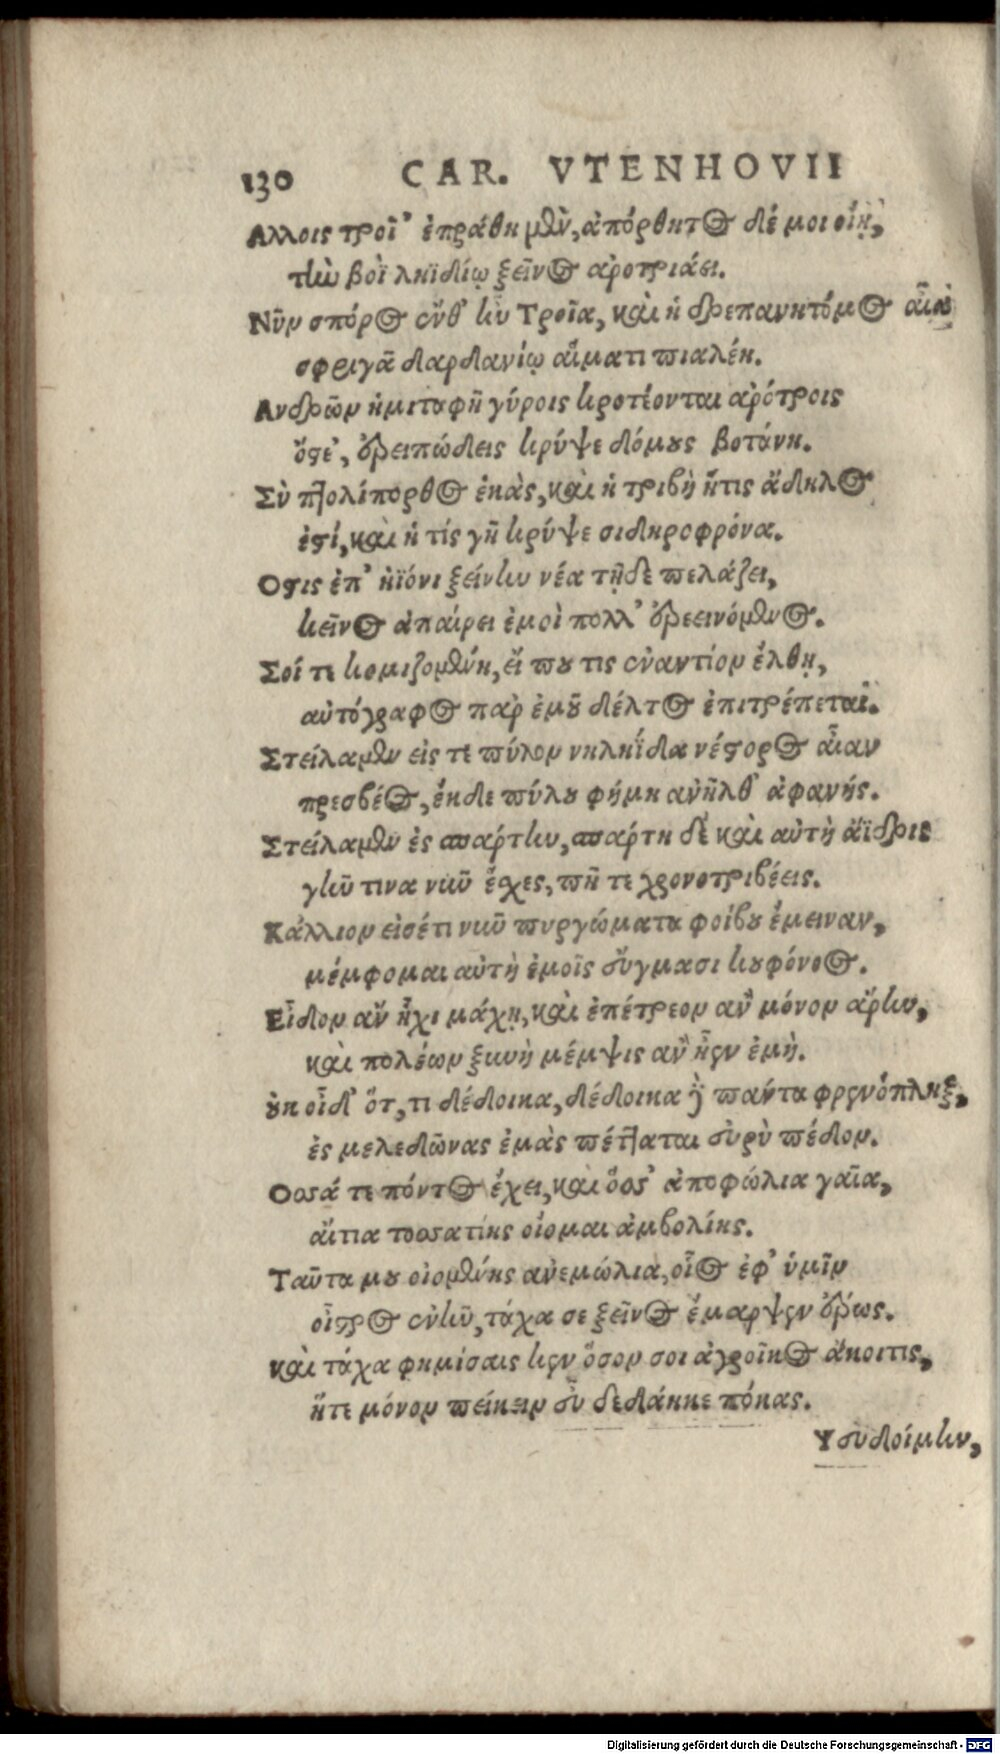 130 CAR. VTENHOVII
Αλλοις τροῖ' ἐπράθη μὲν, ἀπόρθητος δέ μοι οἴῃ,
τὴν βοῒ ληϊδίῳ ξεῖνος ἀροτριάει.
Νῦν σπόρος ἔνθ' ἦν Τροῖα, καὶ ἡ δρεπανητόμος αἶα
σφριγᾶ δαρδανίῳ αἵματι πιαλέη.
Ανδρῶν ἡμιταφῆ γύροις κροτέονται ἀρότροις
ὄστε', ἐρειπώδεις κρύψε δόμους βοτάνη.
Σὺ πτολίπορθος ἑκὰς, καὶ ἡ τριβὴ ἥτις ἄδηλος
ἐστί, καὶ ἡ τίς γῆ κρύψε σιδηροφρόνα.
Οστις ἐπ' ἠϊόνι ξείνην νέα τῇδε πελάζει,
κεῖνος ἀπαίρει ἐμοὶ πολλ' ἐρεεινόμενος.
Σοί τι κομιζομένη, εἴ που τις ἐναντίον ἔλθῃ,
αὐτόγραφος παρ ἐμοῦ δέλτος ἐπιτρέπεται.
Στείλαμεν εἰς τε πύλον νηληΐδα νέστορος αἶαν
πρεσβέος, ἐκ δε πύλου φήμη ἀνῆλθ' ἀφανής.
Στείλαμεν ἐς σπάρτην, σπάρτη δὲ καὶ αὐτὴ ἄϊδρις
γῆν τινα νῦν ἔχες, πῆ τε χρονοτριβέεις.
Κάλλιον εἰσέτι νῦν πυργώματα φοίβου ἔμειναν,
μέμφομαι αὐτὴ ἐμοῖς εὔγμασι κουφόνοος.
Εἶδον ἂν ἧχι μάχῃ, καὶ ἐπέτρεον ἂν μόνον ἄρην,
καὶ πολέων ξυνὴ μέμψις ἂν ἦεν ἐμὴ.
ουκ οἶδ' ὅτ, τι δέδοικα, δέδοικα γὰρ πάντα φρενόπληξ,
ἐς μελεδῶνας ἐμὰς πέπταται εὐρὺ πέδον.
Οσσά τε πόντος ἔχει, καὶ ὅσσ' ἀποφώλια γαῖα,
αἴτια τοσσατίης οἴομαι ἀμβολίης.
Ταῦτα μου οἰομένης ἀνεμώλια, οἷος ἐφ' ὑμῖν
οἶστρος ἐνῆν, τάχα σε ξεῖνος ἔμαρψεν ἔρως.
καὶ τάχα φημίσαις κεν ὅσον σοι ἀγροῖκος ἄκοιτις,
ἥτε μόνον πείκειν εὖ δεδάηκε πόκας.
Ψευδοίμην,
Digitalisierung gefördert durch die Deutsche Forschungsgemeinschaft - DFG